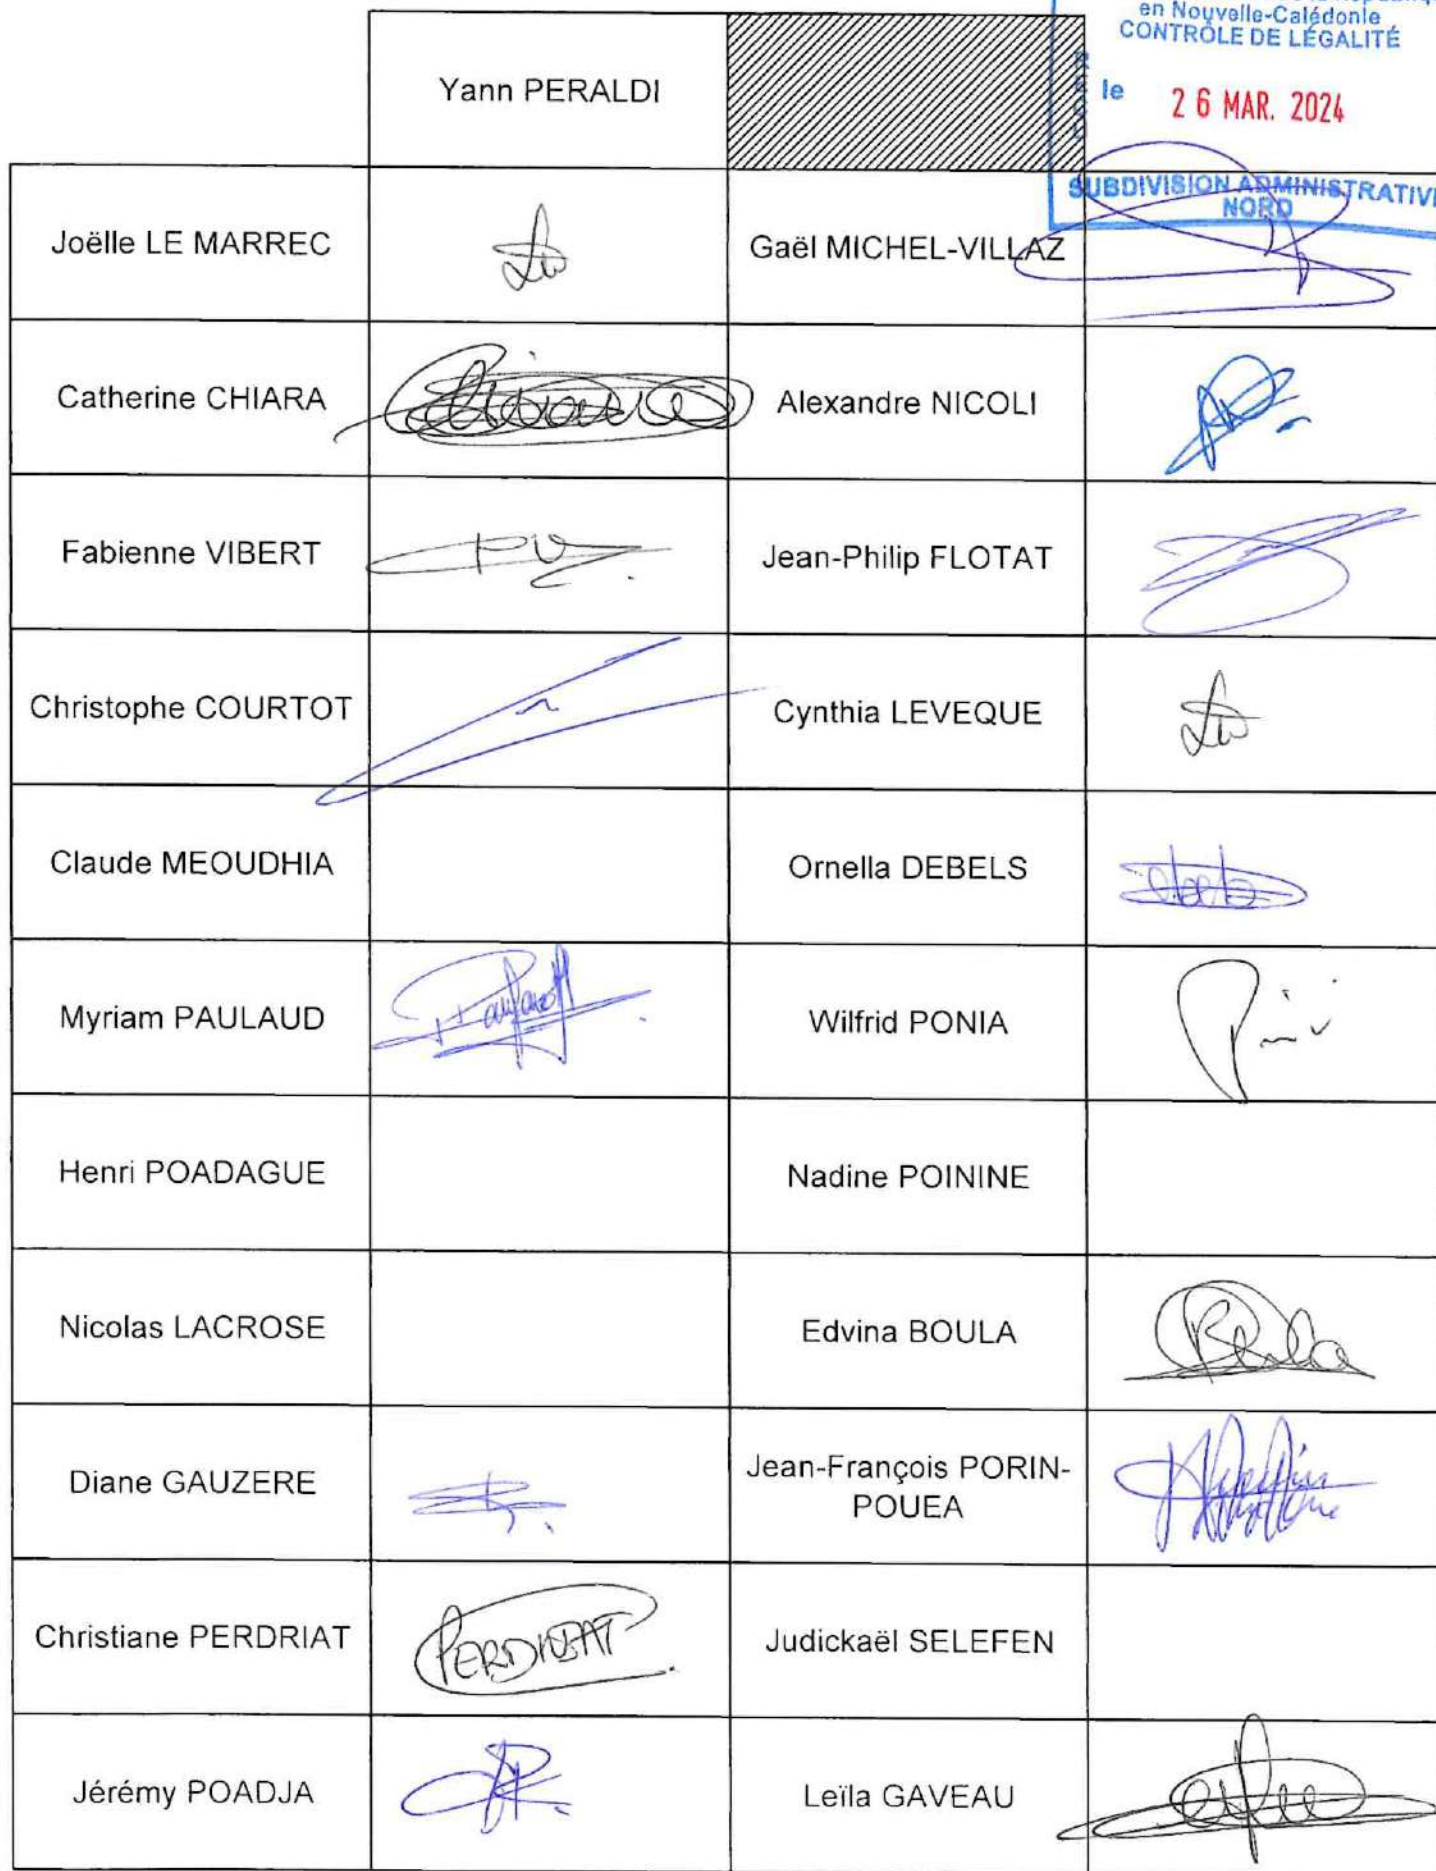 en Nouvelle-Calédonie
CONTRÔLE DE LÉGALITÉ
Yann PERALDI
le 26 MAR. 2024
SUBDIVISION ADMINISTRATIVE
NORD
Joëlle LE MARREC
Gaël MICHEL-VILLAZ
Catherine CHIARA
Alexandre NICOLI
Fabienne VIBERT
Jean-Philip FLOTAT
Christophe COURTOT
Cynthia LEVEQUE
Claude MEOUDHIA
Ornella DEBELS
Myriam PAULAUD
Wilfrid PONIA
Henri POADAGUE
Nadine POININE
Nicolas LACROSE
Edvina BOULA
Diane GAUZERE
Jean-François PORIN-
POUEA
Christiane PERDRIAT
PERDRIAT
Judickaël SELEFEN
Jérémy POADJA
Leïla GAVEAU